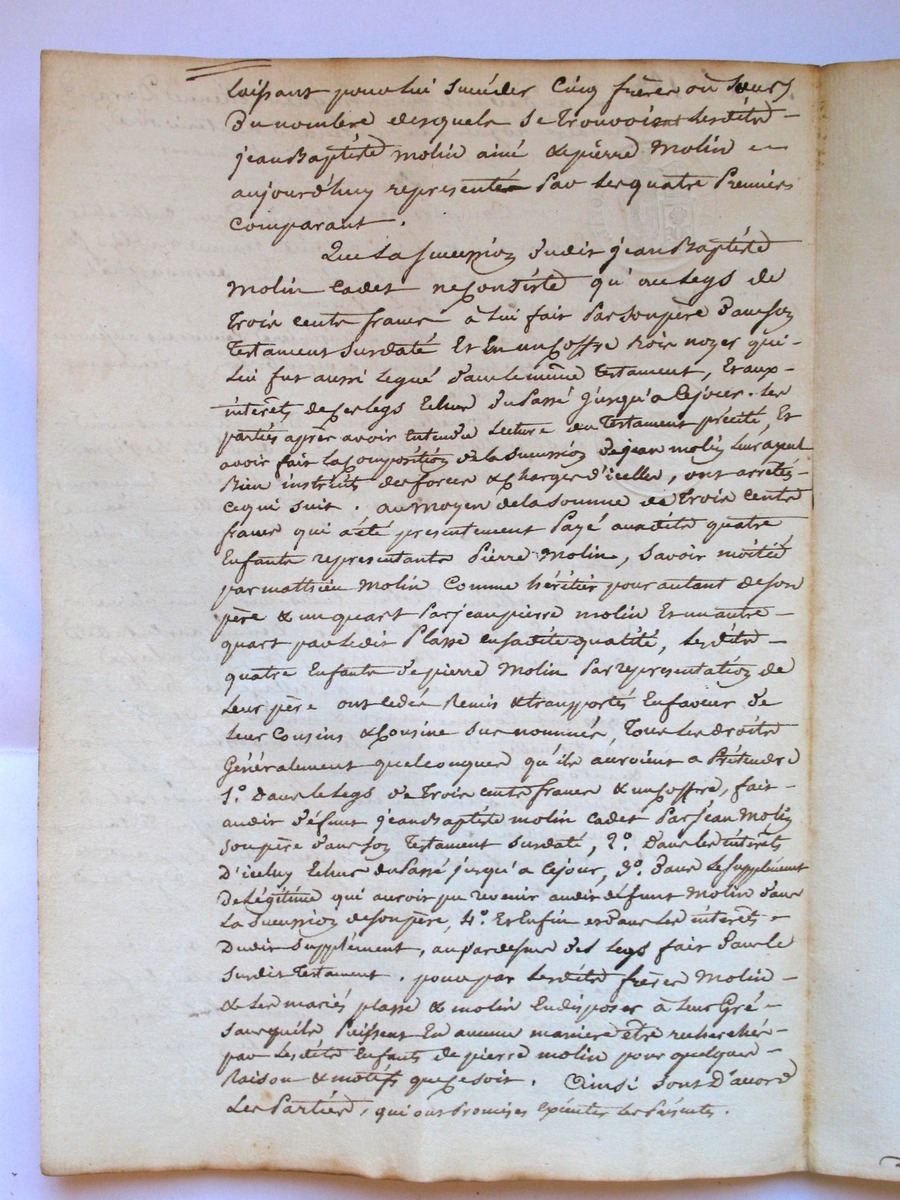 laissant pour lui succéder cinq frères où sœurs
du nombre desquels se trouvoient lesdits
jean Baptiste molin ainé & pierre Molin
aujourd'huy representé par les quatre Premiers
comparant.
Que la succession dudit jean Baptiste
Molin cadet ne consiste qu'au legs de
Trois cents francs à lui fait par son père dans son
Testament susdaté et en un coffre bois noyer qui
lui fut aussi legué dans le même testament, et aux
intérêts de ces legs echus du passé jusqu'a ce jour. les
parties après avoir entendu lecture du testament précité, et
avoir fait la composition de la succession de jean molin leur ayeul
bien instruits des forces & charges d'icelle, ont arretés
ce qui suit. au moyen de la somme de trois cents
francs qui a été presentement payé auxdits quatre
Enfants representants Pierre Molin, savoir moitié
par mathieu Molin comme héritier pour autant de son
père & un quart par jean pierre molin et un autre
quart par ledit Plasse en sadite qualité, lesdits
quatre Enfants de pierre Molin par representation de
leur père ont cedés Remis & transportés en faveur de
leur Cousins & Cousine sus nommés, tous les droits
Généralement quelconques qu'ils auroient a Prétendre
1.° dans le legs de trois cents francs & un coffre, fait
audit défunt jean Baptiste molin cadet par jean Molin
son père dans son testament susdaté, 2.° dans les intérêts
d'iceluy echus du passé jusqu'a ce jour, 3.° dans le supplément
de Légitime qui auroit pu revenir audit défunt Molin dans
la succession de son père, 4.° et enfin dans les intérêts
dudit supplément, au par dessus des legs fait dans le
susdit testament. pour par lesdits frères Molin
& les mariés plasse & molin en disposer à leur Gré,
sans qu'ils Puissent en aucune maniere être recherchés
par lesdits Enfants de pierre molin pour quelque
Raison & motifs que ce soit. Ainsi sont d'accord
les Parties, qui ont Promises exécuter les présentes.